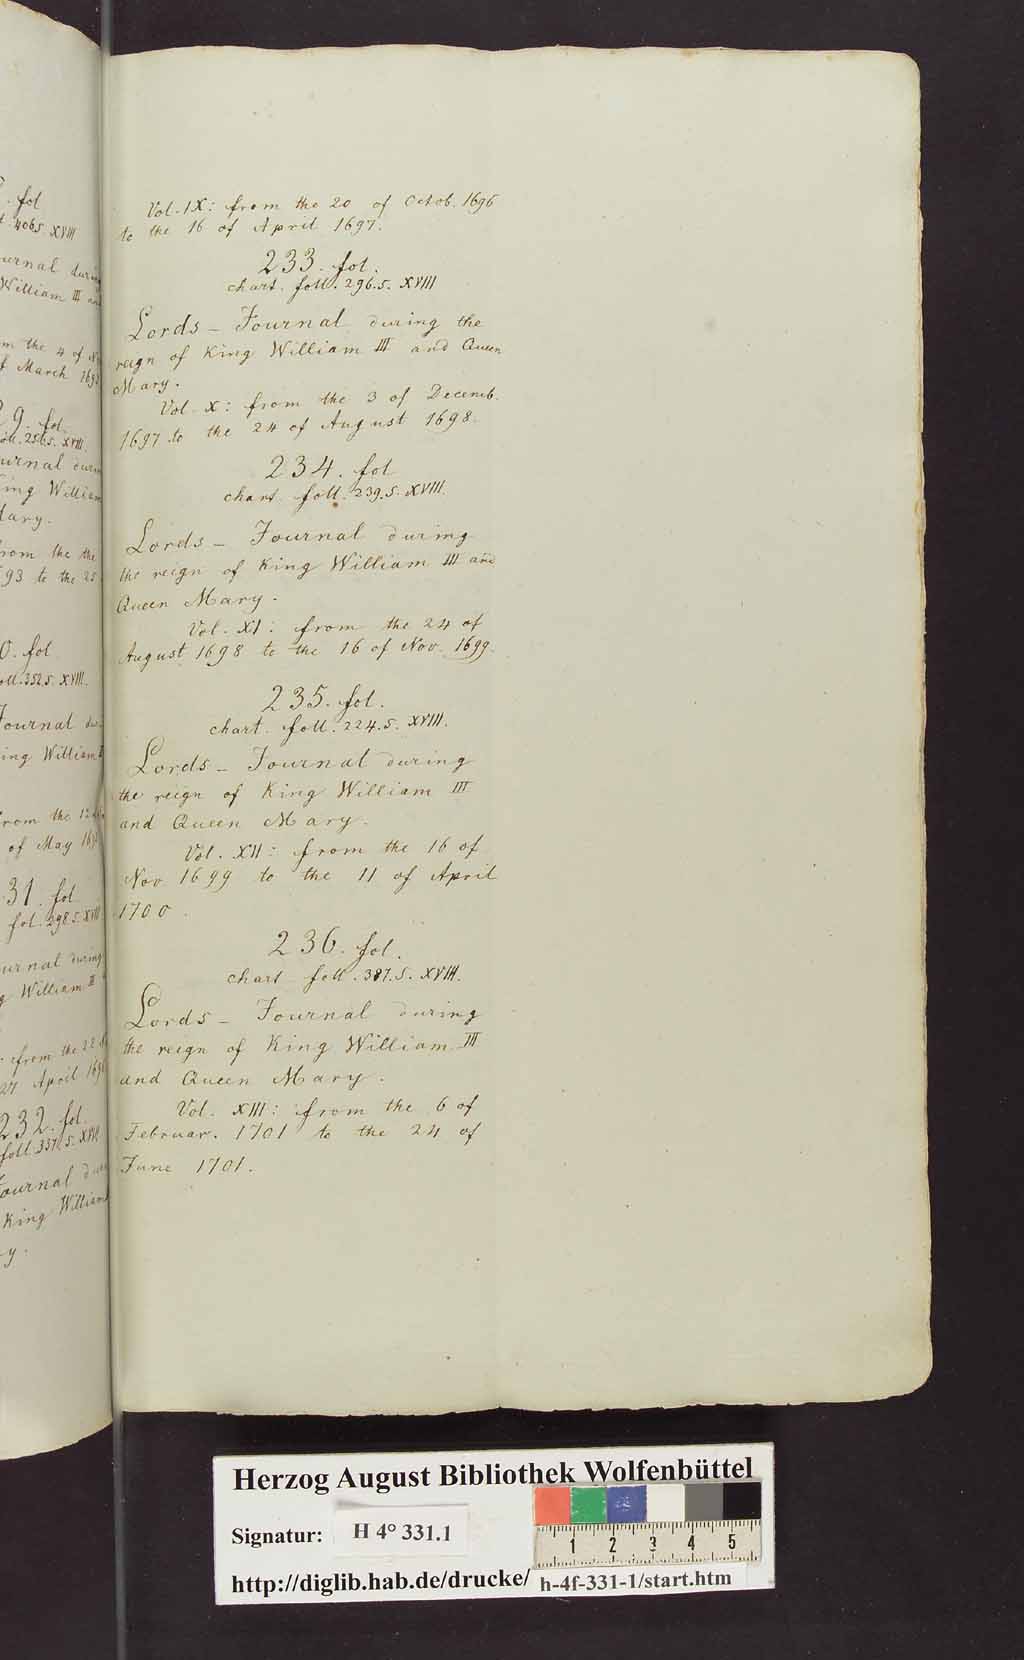 . fol
4065. XVIII
urnal during
William III and
m the 4 of
f March 169
9. fol.
foll. 256. s. XVIII.
urnal durin
ing William
Mary.
from the the
93 to the 25
0. fol
oll. 352 s. XVIII.
Journal du
ing William
from the 12
of May 169
31. fol
fol. 298 s. XVIII
urnal during
g William II
from the 22
27 April 169
232. fol.
foll. 357. s. XVIII
Journal du
King William
y.
Vol. IX: from the 20 of Octob. 1696
to the 16 of April 1697.
233. fol.
chart. foll. 296. s. XVIII
Lords - Journal during the
reign of King William III and Queen
Mary.
Vol. X: from the 3 of Decemb.
1697 to the 24 of August 1698.
234. fol
chart foll. 239. s. XVIII.
Lords - Journal during
the reign of King William III and
Queen Mary.
Vol. XI: from the 24 of
August 1698 to the 16 of Nov. 1699.
235. fol.
chart. foll. 224. s. XVIII.
Lords - Journal during
the reign of King William III
and Queen Mary.
Vol. XII: from the 16 of
Nov 1699 to the 11 of April
1700.
236. fol.
chart foll. 387. s. XVIII.
Lords - Journal during
the reign of King William III
and Queen Mary.
Vol. XIII: from the 6 of
Februar. 1701 to the 24 of
June 1701.
Herzog August Bibliothek Wolfenbüttel
Signatur: H 4° 331.1
1 2 3 4 5
http://diglib.hab.de/drucke/ h-4f-331-1/start.htm